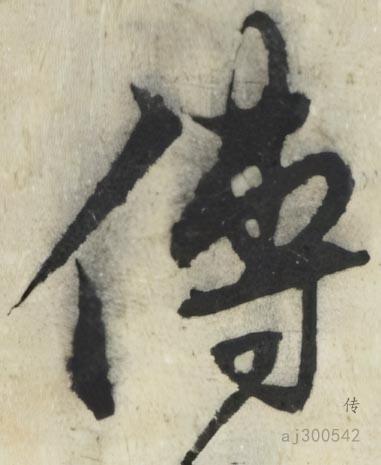 傳
传
aj300542